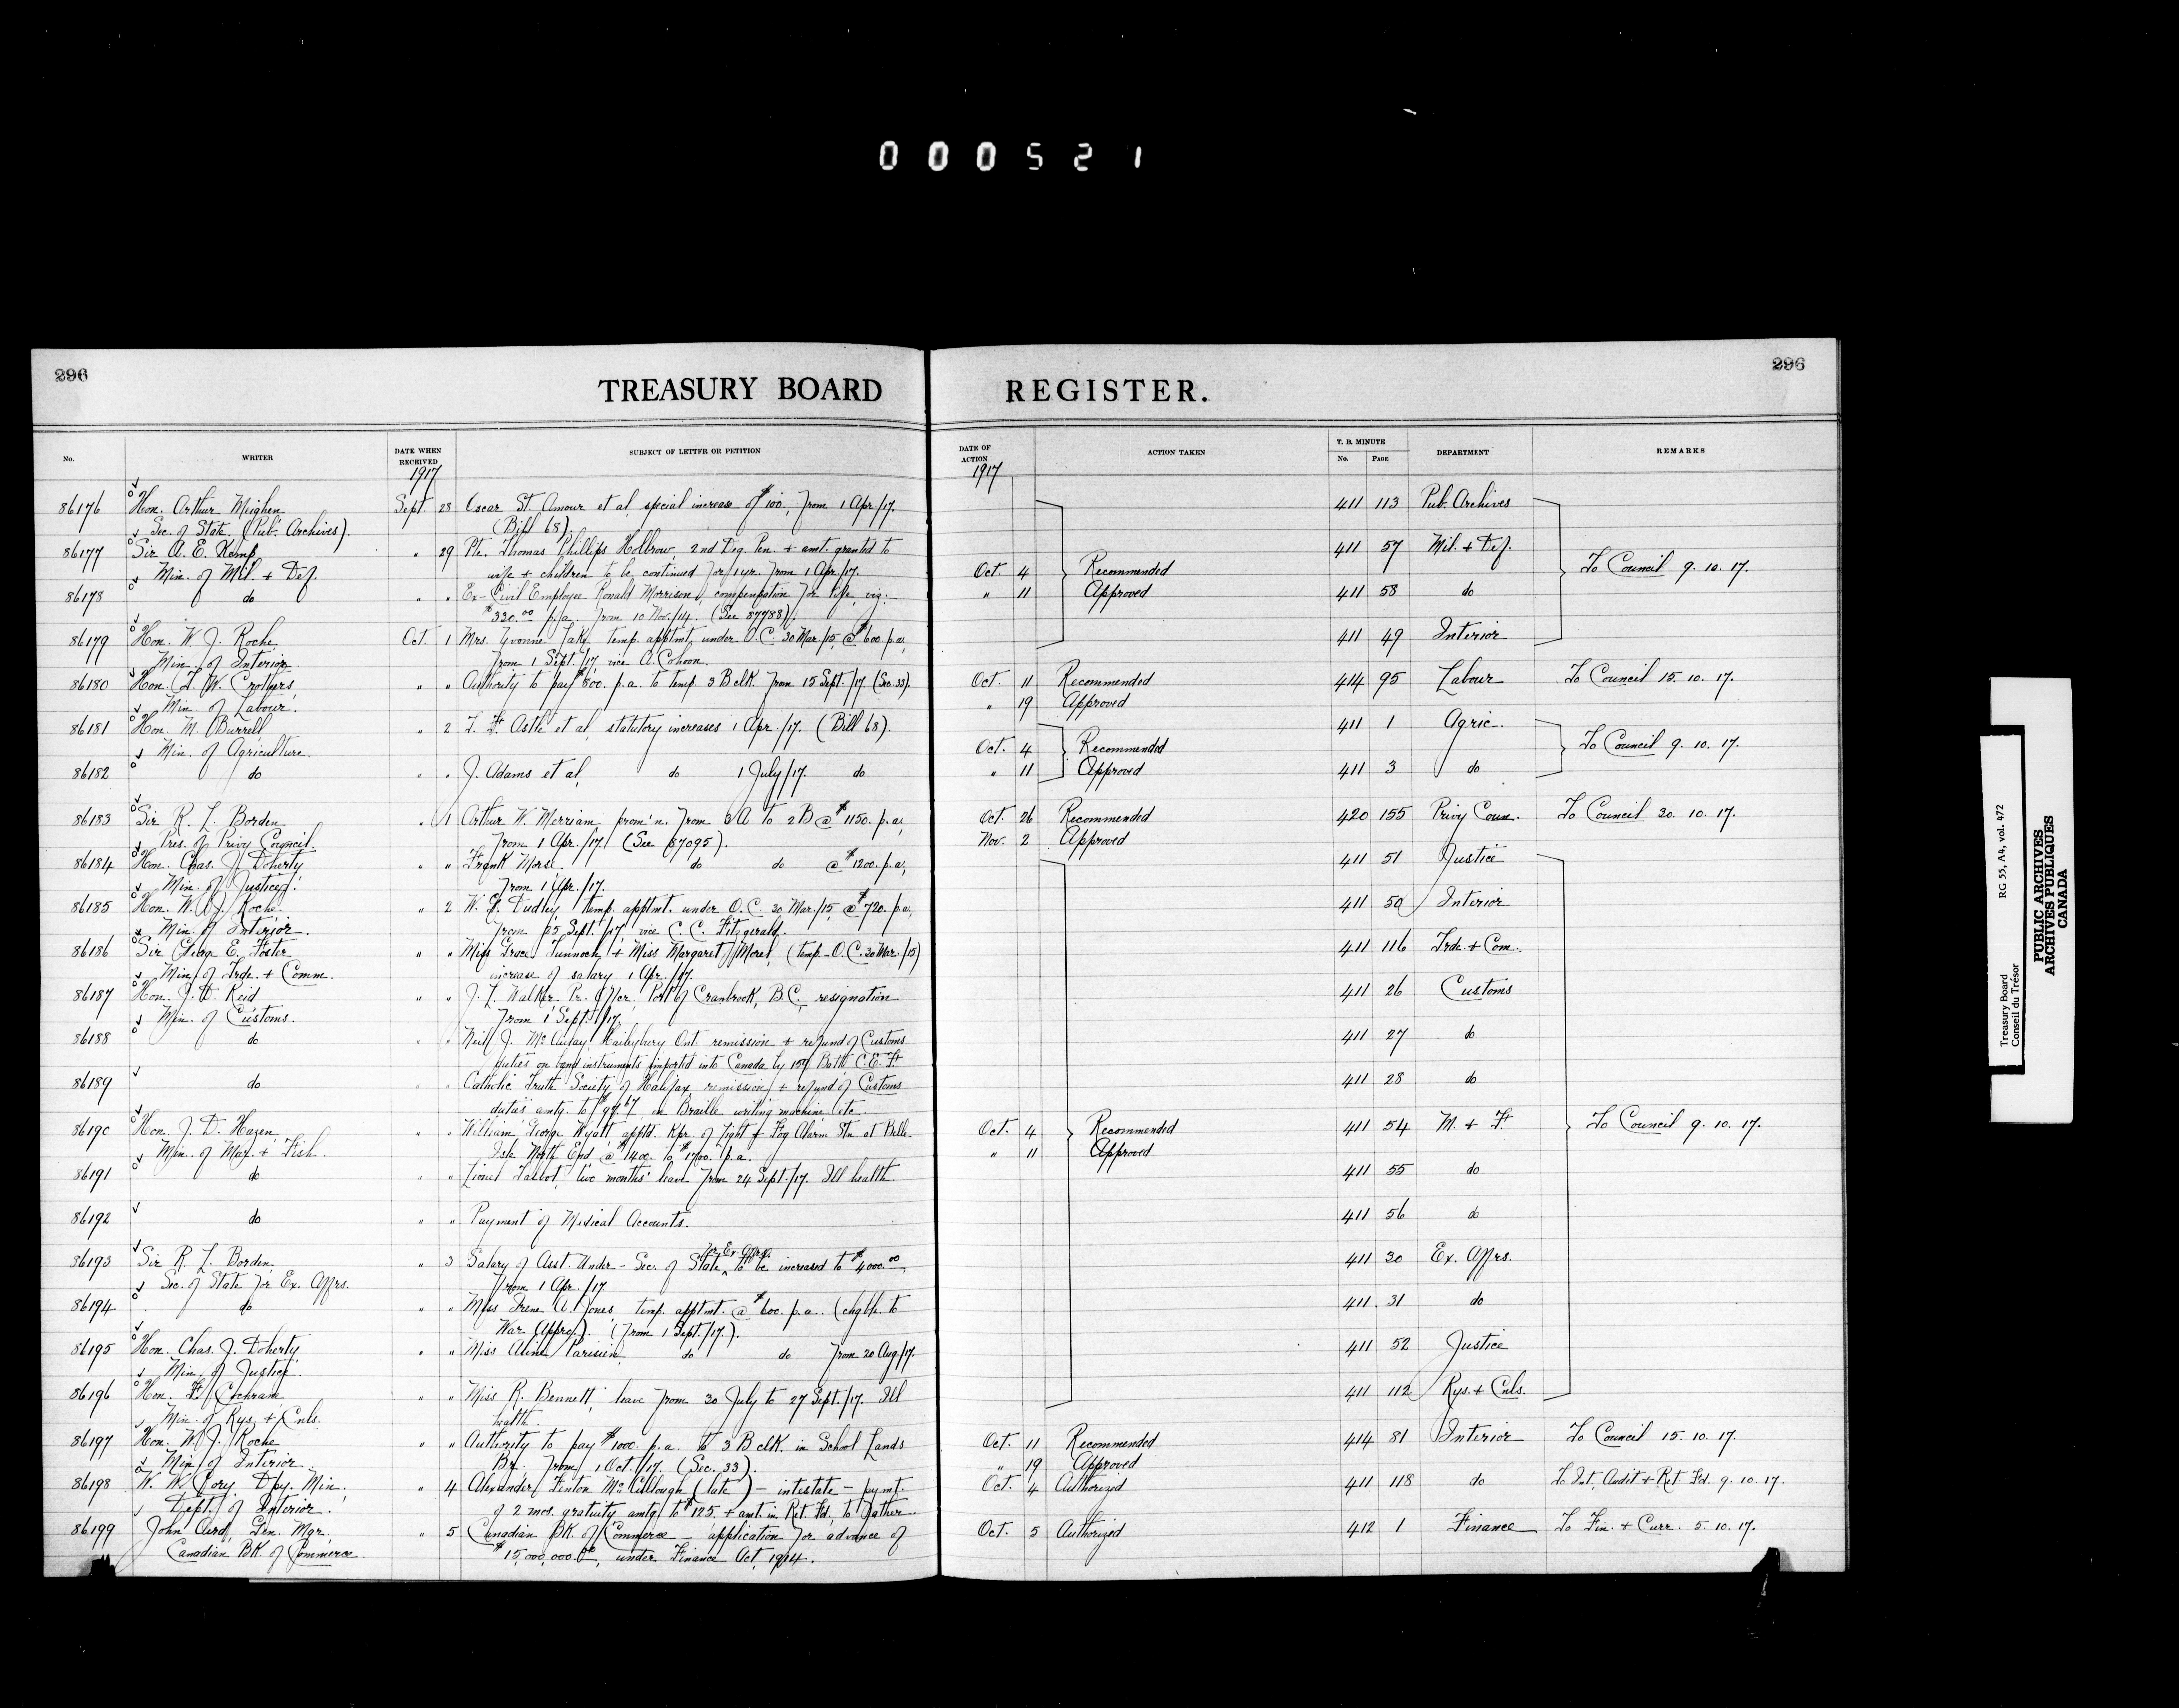 000521
296
TREASURY BOARD
No.
WRITER
DATE WHEN RECEIVED
SUBJECT OF LETTER OR PETITION
1917
86176 Hon. Arthur Meighen Sept. 28 Oscar St. Amour et al, special increase of $100, from 1 Apr/17.
Sec. of State. (Pub. Archives). (Bill 68).
86177 Sir A. E. Kemp " 29 Pte. Thomas Phillips Holbrow, 2nd Deg. Pen. + amt. granted to
Min. of Mil. + Def. wife + children to be continued for 1 yr. from 1 Apr./17.
86178 do " " Ex-Civil Employee Ronald Morrison, compensation for life, viz:-
$330.00 p.a. from 10 Nov./14. (See 87788).
86179 Hon. W. J. Roche Oct. 1 Mrs. Yvonne temp. apptmt. under O.C. 30 Mar./15, @ $600 p.a,
Min. of Interior. from 1 Sept./17, vice A. Cohoon.
86180 Hon. T. W. Crothers " " Authority to pay $800. p.a. to temp. 3 B clk. from 15 Sept./17. (Sec. 33).
Min. of Labour.
86181 Hon. M. Burrell " 2 et al, statutory increases 1 Apr./17. (Bill 68).
Min. of Agriculture.
86182 do " " J. Adams et al, do 1 July/17. do
86183 Sir R. L. Borden " 1 Arthur W. Merriam prom'n. from 3 A to 2 B @ $1150. p.a,
Pres. of Privy Council. from 1 Apr./17. (See 87095).
86184 Hon. Chas. J. Doherty " " Frank Morse do do @ $1200. p.a,
Min. of Justice. from 1 Apr./17.
86185 Hon. W. J. Roche " 2 W. F. Dudley temp. apptmt. under O.C. 30 Mar./15, @ $720. p.a,
Min. of Interior. from 25 Sept./17 vice C. C. Fitzgerald.
86186 Sir George E. Foster " " Miss Grace + Miss Margaret Morel, (temp.-O.C. 30 Mar./15)
Min. of Trde. + Comm. increase of salary 1 Apr./17.
86187 Hon. J. D. Reid " " J. L. Walker, Pr. Offcr. Port of Cranbrook, B.C., resignation
Min. of Customs. from 1 Sept./17.
86188 do " " Neil J. McAulay, Haileybury Ont. remission + refund of Customs
duties on band instruments imported into Canada by 159 Battn. C.E.F.
86189 do " " Catholic Truth Society of Halifax, remission + refund of Customs
duties amtg. to $97.67 on Braille writing machine etc.
86190 Hon. J. D. Hazen " " William George Wyatt apptd. Kpr. of Light + Fog Alarm Stn. at Belle
Min. of Mar. + Fish. Isle North End @ $1400. to $1700. p.a.
86191 do " " Lionel Talbot, two months' leave from 24 Sept./17. Ill health.
86192 do " " Payment of Medical Accounts.
for Ex. Affrs.
86193 Sir R. L. Borden " 3 Salary of Asst. Under-Sec. of State to be increased to $4000.00,
Sec. of State for Ex. Affrs. from 1 Apr./17.
86194 do " " Miss Irene A. Jones temp. apptmt. @ $600. p.a. (chgble. to
War Appro.). (from 1 Sept./17.).
86195 Hon. Chas. J. Doherty " " Miss Aline Parisien, do do from 20 Aug./17.
Min. of Justice.
86196 Hon. F. Cochrane " " Miss R. Bennett, leave from 30 July to 27 Sept./17. Ill
Min. of Rys. + Cnls. health.
86197 Hon. W. J. Roche " " Authority to pay $1000. p.a. to 3 B clk. in School Lands
Min. of Interior Br. from 1 Oct./17. (Sec. 33).
86198 W. W. Cory, Dpy. Min. " 4 Alexander Fenton McCullough (late) - intestate - pymt.
Dept. of Interior. of 2 mos. gratuity amtg. to $125. + amt. in Ret. Fd. to father
86199 John Aird, Gen. Mgr. " 5 Canadian BK. of Commerce - application for advance of
Canadian BK. of Commerce. $15,000,000.00, under Finance Act, 1914.
296
REGISTER.
DATE OF ACTION
ACTION TAKEN
T. B. MINUTE
No. PAGE
DEPARTMENT
REMARKS
1917
411 113 Pub. Archives
411 57 Mil. + Def.
Oct. 4 Recommended To Council 9. 10. 17.
" 11 Approved 411 58 do
411 49 Interior
Oct. 11 Recommended 414 95 Labour To Council 15. 10. 17.
" 19 Approved
411 1 Agric.
Oct. 4 Recommended To Council 9. 10. 17.
" 11 Approved 411 3 do
Oct. 26 Recommended 420 155 Privy Coun. To Council 30. 10. 17.
Nov. 2 Approved
411 51 Justice
411 50 Interior
411 116 Trde. + Com.
411 26 Customs
411 27 do
411 28 do
Oct. 4 Recommended 411 54 M. + F. To Council 9. 10. 17.
" 11 Approved
411 55 do
411 56 do
411 30 Ex. Affrs.
411 31 do
411 52 Justice
411 112 Rys. + Cnls.
Oct. 11 Recommended 414 81 Interior To Council 15. 10. 17.
" 19 Approved
Oct. 4 Authorized 411 118 do To Int., Audit + Ret. Fd. 9. 10. 17.
Oct. 5 Authorized 412 1 Finance To Fin. + Curr. 5. 10. 17.
Treasury Board
Conseil du Trésor
RG 55, A4, vol. 472
PUBLIC ARCHIVES
ARCHIVES PUBLIQUES
CANADA